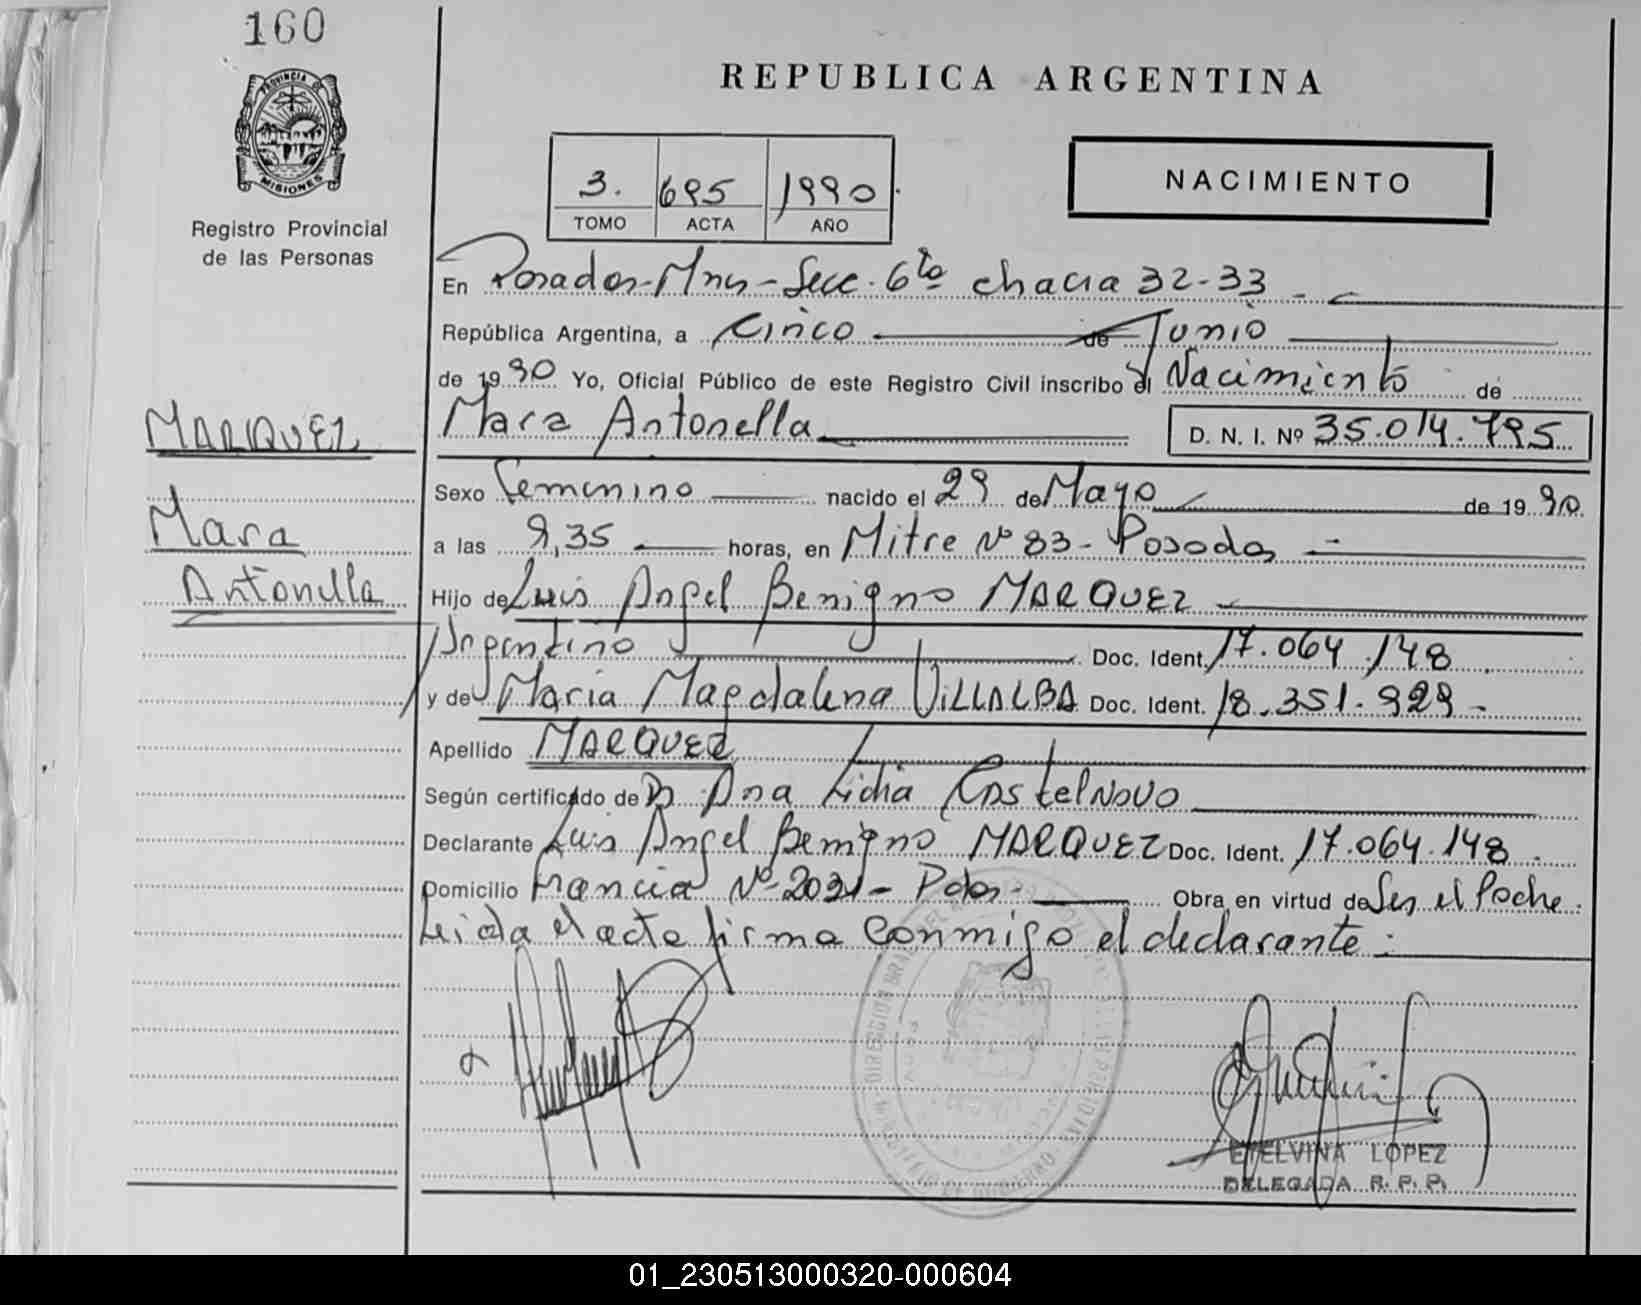 160
REPUBLICA ARGENTINA
PROVINCIA DE
MISIONES
Registro Provincial
de las Personas
3. 695 1990
TOMO ACTA AÑO
NACIMIENTO
En Posadas-Mnes-Secc. 6ta chacra 32-33
República Argentina, a Cinco de Junio
de 1990 Yo, Oficial Público de este Registro Civil inscribo el Nacimiento de
Mara Antonella D. N. I. Nº 35.014.795
MARQUEZ
Mara
Antonella
Sexo Femenino nacido el 29 de Mayo de 1990.
a las 9,35 horas, en Mitre Nº 83 - Posadas
Hijo de Luis Angel Benigno MARQUEZ
Argentino Doc. Ident. 17.064.148
y de Maria Magdalena VILLALBA Doc. Ident. 18.351.929
Apellido MARQUEZ
Según certificado de Dª Ana Lidia Castelnovo
Declarante Luis Angel Benigno MARQUEZ Doc. Ident. 17.064.148
Domicilio Francia Nº 2031 - Pdas - Obra en virtud de Ser el Padre.
Leida el acta firma conmigo el declarante:
ETELVINA LOPEZ
DELEGADA R. P. P.
01_230513000320-000604